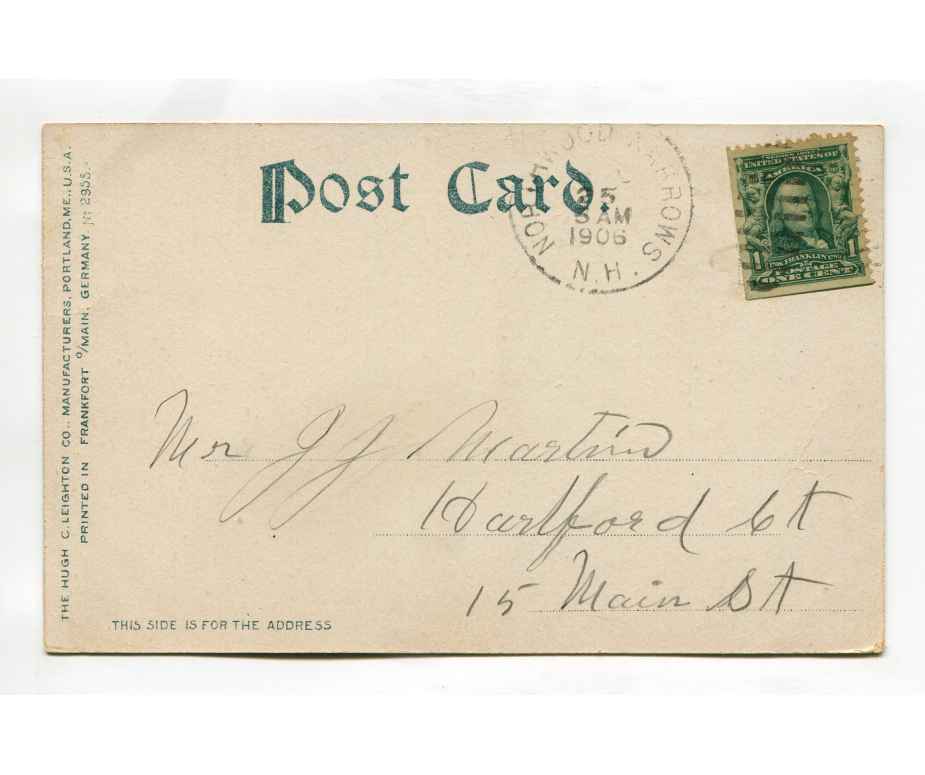 THE HUGH C. LEIGHTON CO., MANUFACTURERS, PORTLAND, ME., U.S.A.
PRINTED IN FRANKFORT o/MAIN, GERMANY № 2955.
Post Card.
NORTHWOOD NARROWS
25
AM
1906
N.H.
UNITED STATES OF
AMERICA
1 1
FRANKLIN
POSTAGE
ONE CENT
Mr J J Martin
Hartford Ct
15 Main St
THIS SIDE IS FOR THE ADDRESS